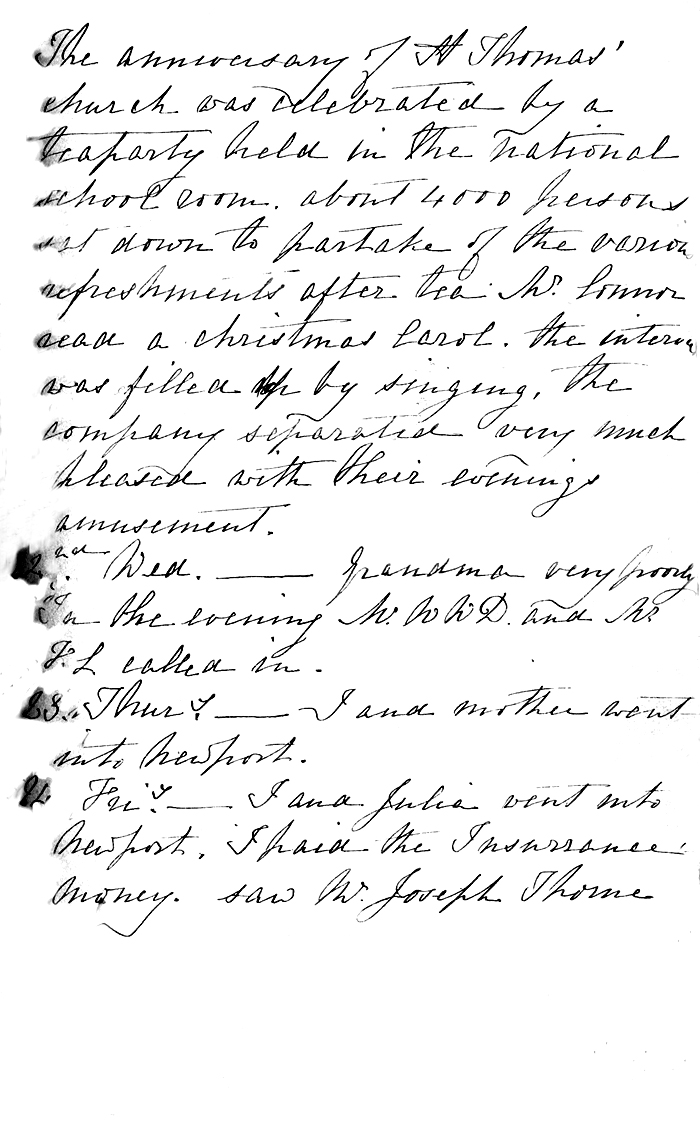 The anniversary of St Thomas'
church was celebrated by a
teaparty held in the national
school room. about 4000 persons
sat down to partake of the variou
refreshments after tea Mr. Connor
read a christmas Carol. the interva
was filled up by singing, the
company separated very much
pleased with their evenings
amusement.
2nd. Wed. — Grandma very poorly
In the evening Mr. W W D. and Mr
F. L called in.
23. Thury. — I and mother went
into Newport.
24 Friy. — I and Julia went into
Newport. I paid the Insurrance
money. saw Mr. Joseph Thorne